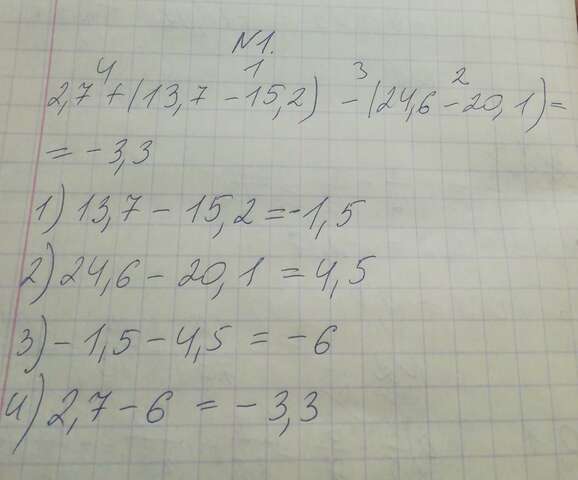 №1.
4 1 3 2
2,7 + (13,7 - 15,2) - (24,6 - 20,1) =
= - 3,3
1) 13,7 - 15,2 = -1,5
2) 24,6 - 20,1 = 4,5
3) - 1,5 - 4,5 = - 6
4) 2,7 - 6 = - 3,3